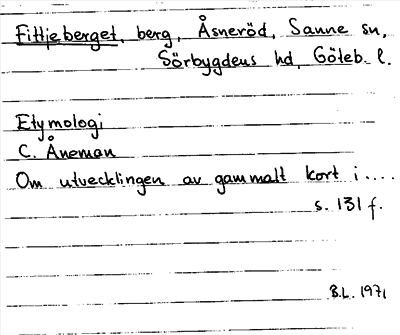 Fittjeberget, berg, Åsneröd, Sanne sn,
Sörbygdens hd, Göteb. l.
Etymologi
C. Åneman
Om utvecklingen av gammalt kort i....
s. 131 f.
B.L. 1971